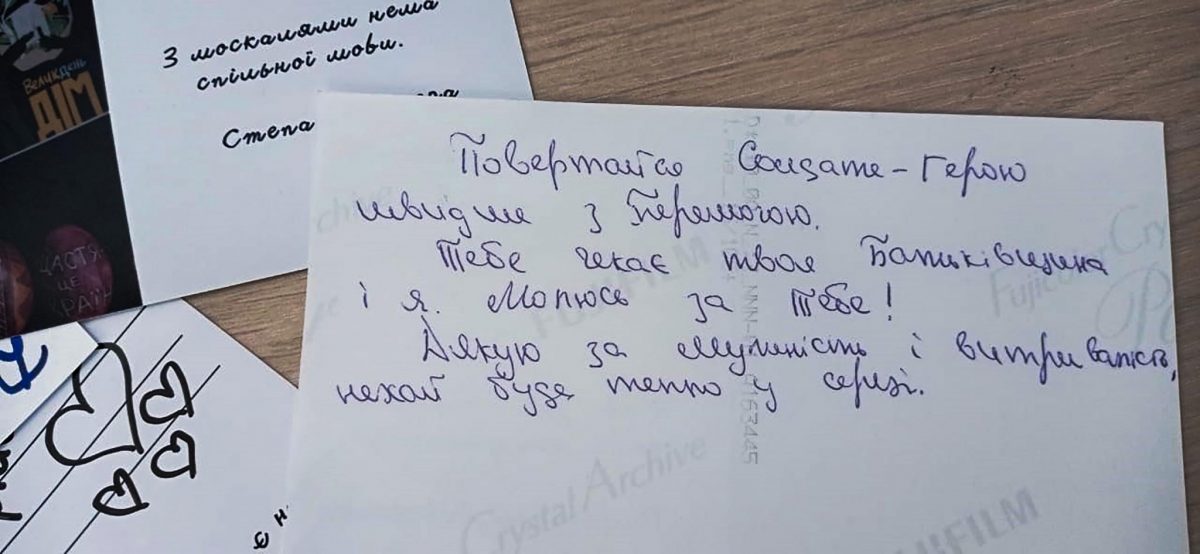 З москалями нема
спільної мови.
Степа
Великдень
ДІМ
ЩАСТЯ
ЦЕ
Повертайся Солдате-Герою
швидше з Перемогою.
Тебе чекає твоя Батьківщина
і я. Молюсь за Тебе!
Дякую за мужність і витривалість,
нехай буде тепло у серці.
Fujicolor Cry
FUJIFILM
Crystal Archive
FUJIFILM